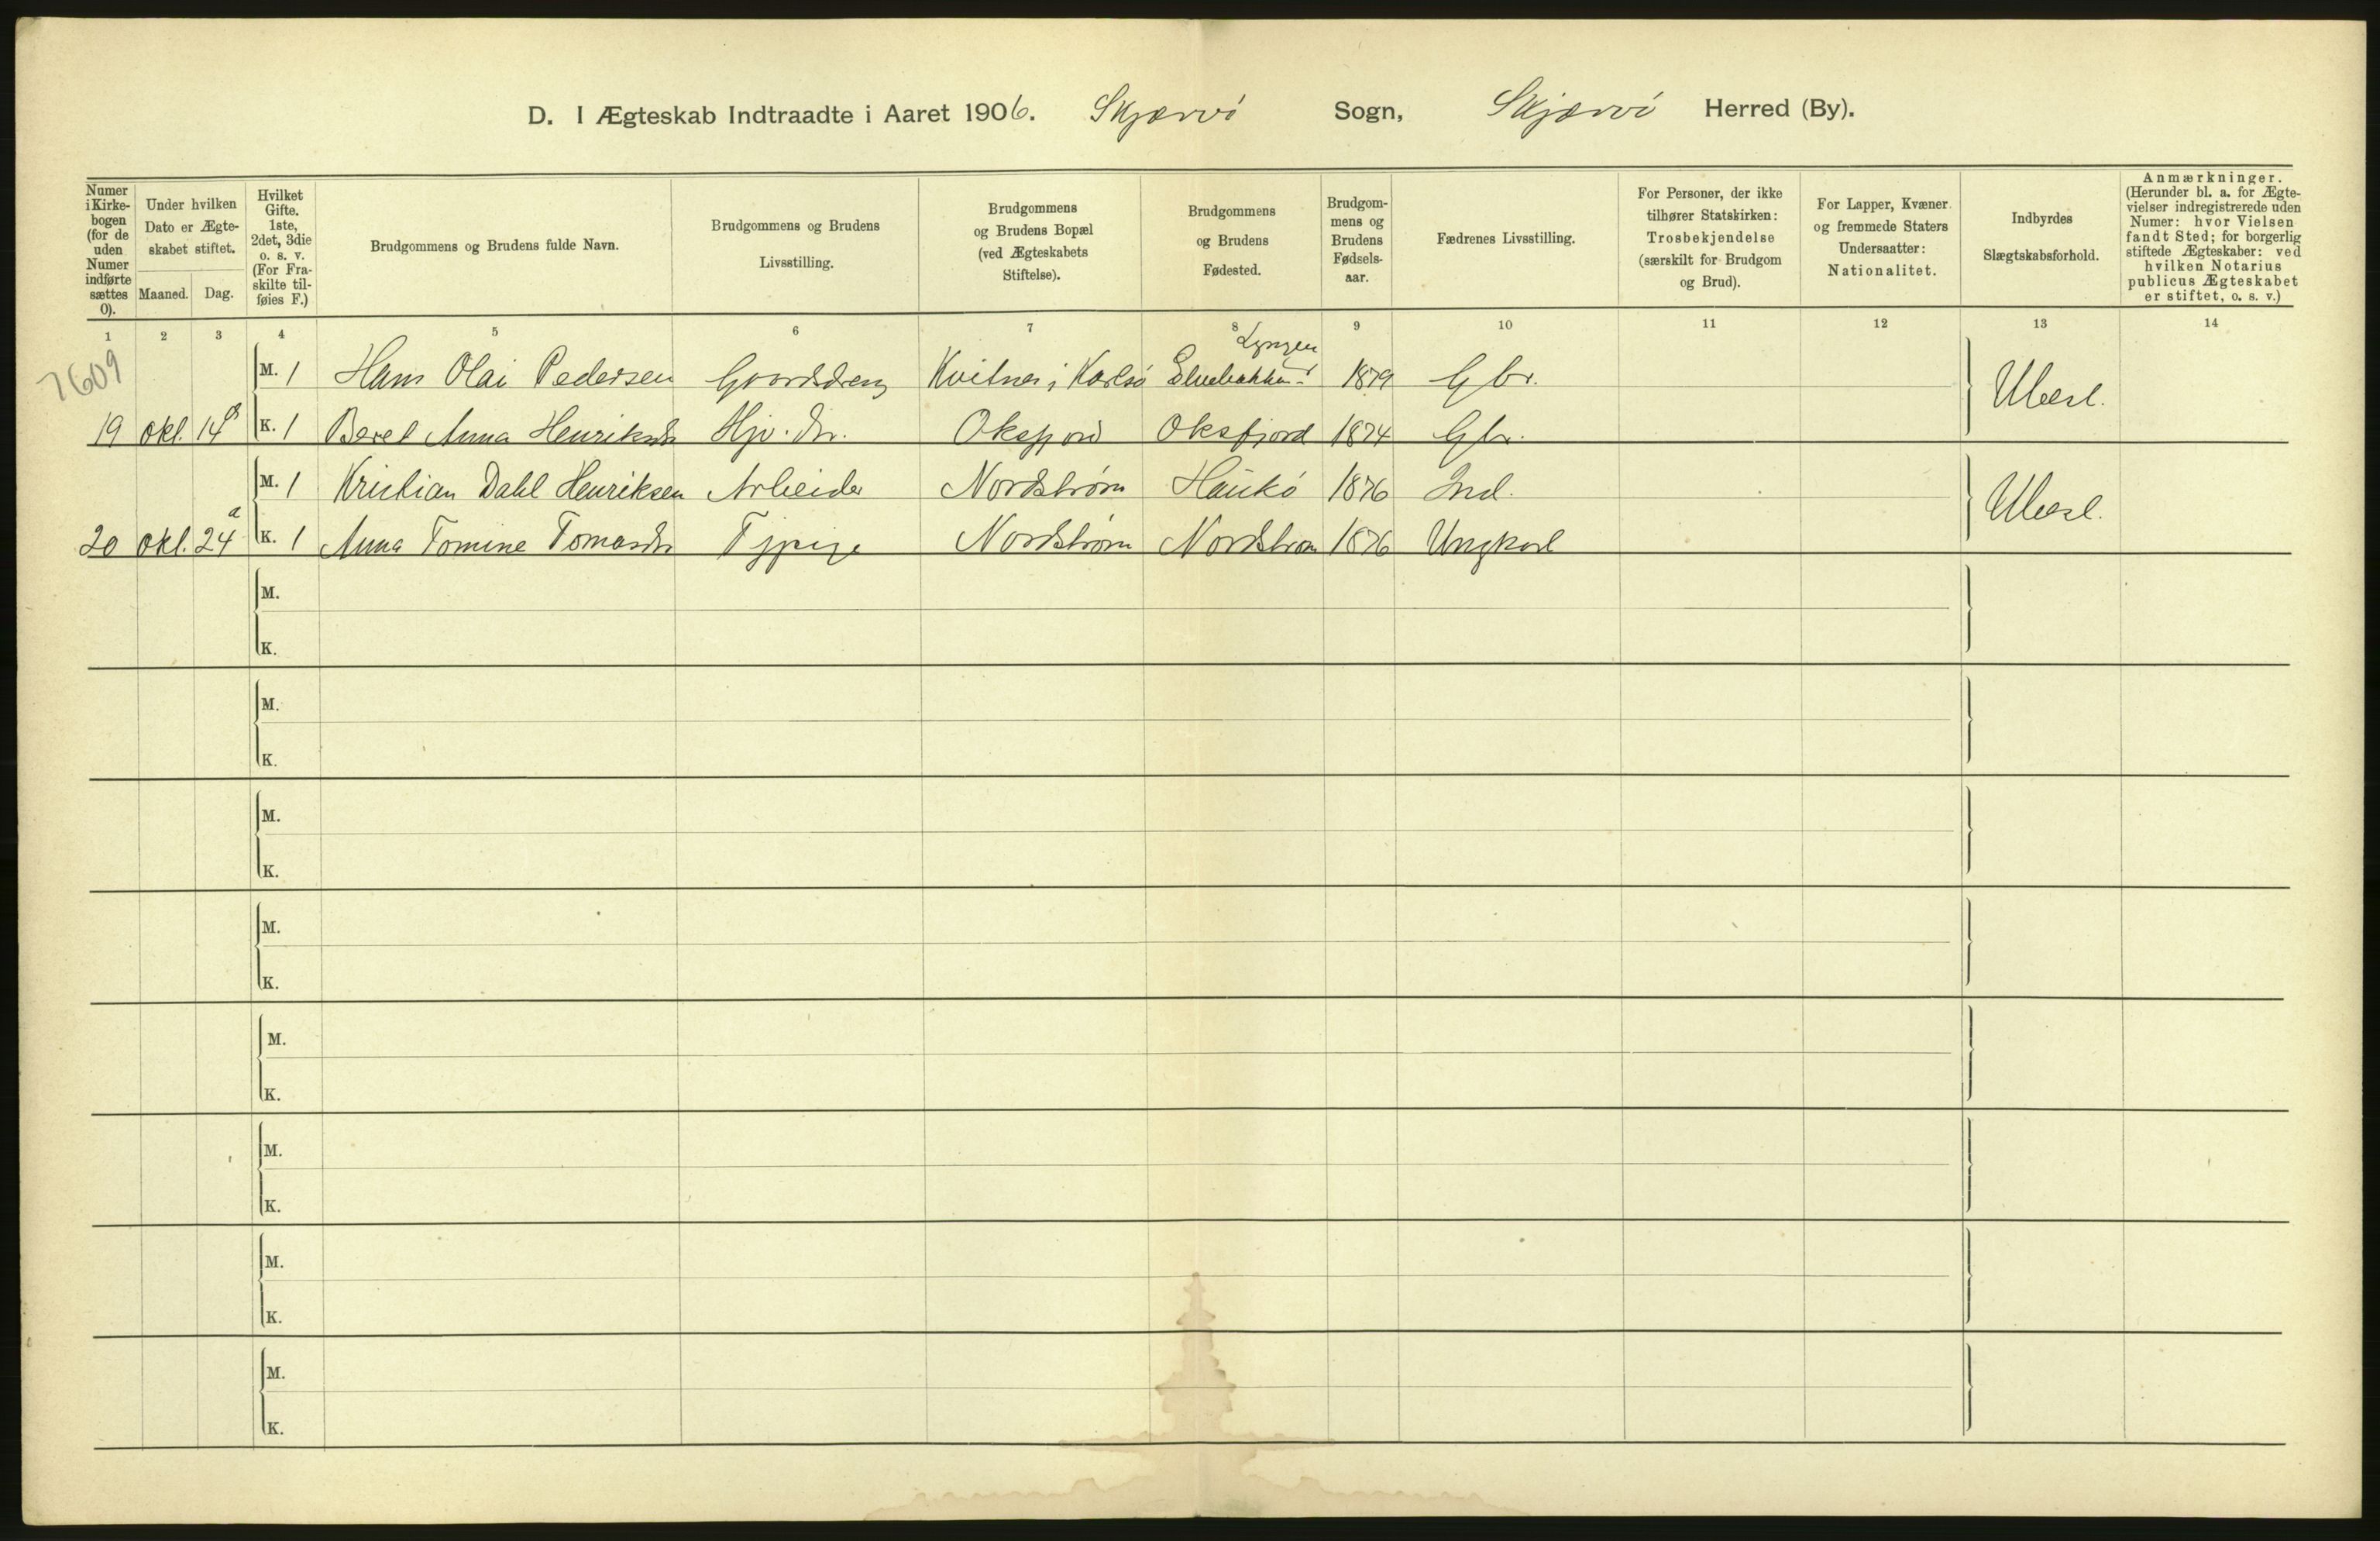 D. I Ægteskab Indtraadte i Aaret 1906. Skjærvö Sogn, Skjærvö Herred (By).
Numer i Kirkebogen (for de uden Numer indførte sættes 0).
Under hvilken Dato er Ægteskabet stiftet.
Maaned. Dag.
Hvilket Gifte. 1ste, 2det, 3die o. s. v. (For Fraskilte tilføies F.)
Brudgommens og Brudens fulde Navn.
Brudgommens og Brudens Livsstilling.
Brudgommens og Brudens Bopæl (ved Ægteskabets Stiftelse).
Brudgommens og Brudens Fødested.
Brudgommens og Brudens Fødselsaar.
Fædrenes Livsstilling.
For Personer, der ikke tilhører Statskirken: Trosbekjendelse (særskilt for Brudgom og Brud).
For Lapper, Kvæner og fremmede Staters Undersaatter: Nationalitet.
Indbyrdes Slægtskabsforhold.
Anmærkninger. (Herunder bl. a. for Ægtevielser indregistrerede uden Numer: hvor Vielsen fandt Sted; for borgerlig stiftede Ægteskaber: ved hvilken Notarius publicus Ægteskabet er stiftet, o. s. v.)
1 2 3 4 5 6 7 8 9 10 11 12 13 14
7609
Lyngen
M. 1 Hans Olai Pedersen Gaardsdreng Kvitnes i Karlsö Elvebakken 1879 Gbr. Ubesl.
19 Okt. 14 K. 1 Beret Anna Henriksdr Hjv. dr. Oksfjord Oksfjord 1874 Gbr.
M. 1 Kristian Dahl Henriksen Arbeider Nordstrøm Haukö 1876 Ind. Ubesl.
20 Okt. 24 K. 1 Anna Tomine Tomasdr Tjpige Nordstrøm Nordstrøm 1876 Ungkarl
M.
K.
M.
K.
M.
K.
M.
K.
M.
K.
M.
K.
M.
K.
M.
K.